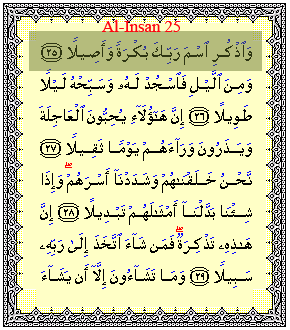 Al-Insan 25
وَٱذْكُرِ ٱسْمَ رَبِّكَ بُكْرَةً وَأَصِيلًا ﴿٢٥﴾
وَمِنَ ٱلَّيْلِ فَٱسْجُدْ لَهُۥ وَسَبِّحْهُ لَيْلًا
طَوِيلًا ﴿٢٦﴾ إِنَّ هَـٰٓؤُلَآءِ يُحِبُّونَ ٱلْعَاجِلَةَ
وَيَذَرُونَ وَرَآءَهُمْ يَوْمًا ثَقِيلًا ﴿٢٧﴾
نَّحْنُ خَلَقْنَـٰهُمْ وَشَدَدْنَآ أَسْرَهُمْ ۖ وَإِذَا
شِئْنَا بَدَّلْنَآ أَمْثَـٰلَهُمْ تَبْدِيلًا ﴿٢٨﴾ إِنَّ
هَـٰذِهِۦ تَذْكِرَةٌ ۖ فَمَن شَآءَ ٱتَّخَذَ إِلَىٰ رَبِّهِۦ
سَبِيلًا ﴿٢٩﴾ وَمَا تَشَآءُونَ إِلَّآ أَن يَشَآءَ